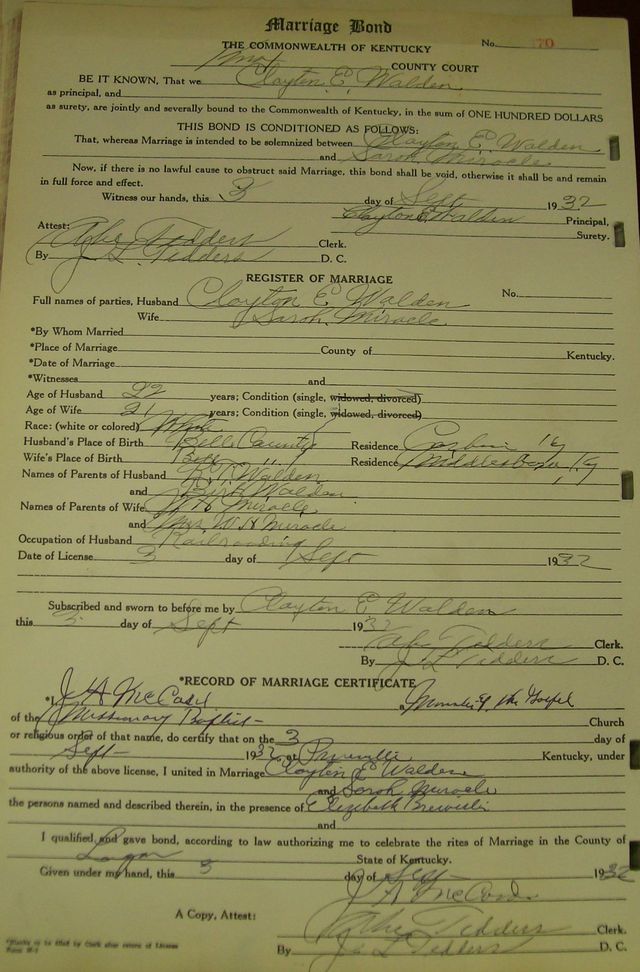 Marriage Bond
THE COMMONWEALTH OF KENTUCKY No. 70
Knox COUNTY COURT
BE IT KNOWN, That we Clayton E. Walden
as principal, and
as surety, are jointly and severally bound to the Commonwealth of Kentucky, in the sum of ONE HUNDRED DOLLARS
THIS BOND IS CONDITIONED AS FOLLOWS:
That, whereas Marriage is intended to be solemnized between Clayton E. Walden
and Sarah Miracle
Now, if there is no lawful cause to obstruct said Marriage, this bond shall be void, otherwise it shall be and remain
in full force and effect.
Witness our hands, this 3 day of Sept 1932
Clayton E. Walden Principal,
Attest: Surety.
Abe Tedders Clerk.
By J L Tedders D. C.
REGISTER OF MARRIAGE
Full names of parties, Husband Clayton E Walden No.
Wife Sarah Miracle
*By Whom Married
*Place of Marriage County of Kentucky.
*Date of Marriage
*Witnesses and
Age of Husband 22 years; Condition (single, widowed, divorced)
Age of Wife 21 years; Condition (single, widowed, divorced)
Race: (white or colored) White
Husband's Place of Birth Bell County Residence Corbin Ky
Wife's Place of Birth Bell " Residence Middlesboro, Ky
Names of Parents of Husband Walden
and Walden
Names of Parents of Wife Miracle
and Mrs W H Miracle
Occupation of Husband Railroading
Date of License 3 day of Sept 1932
Subscribed and sworn to before me by Clayton E Walden
this 3 day of Sept 1932
Abe Tedders Clerk.
By J L Tedders D. C.
*RECORD OF MARRIAGE CERTIFICATE
*I, J A McCord a Minister of the Gospel
of the Missionary Baptist Church
or religious order of that name, do certify that on the 3 day of
Sept 1932 at Kentucky, under
authority of the above license, I united in Marriage Clayton E Walden
and Sarah Miracle
the persons named and described therein, in the presence of Elizabeth
and
I qualified and gave bond, according to law authorizing me to celebrate the rites of Marriage in the County of
State of Kentucky.
Given under my hand, this 3 day of Sept 1932
J A McCord
A Copy, Attest: Abe Tedders Clerk.
By J L Tedders D. C.
*Blanks to be filled by Clerk after return of License